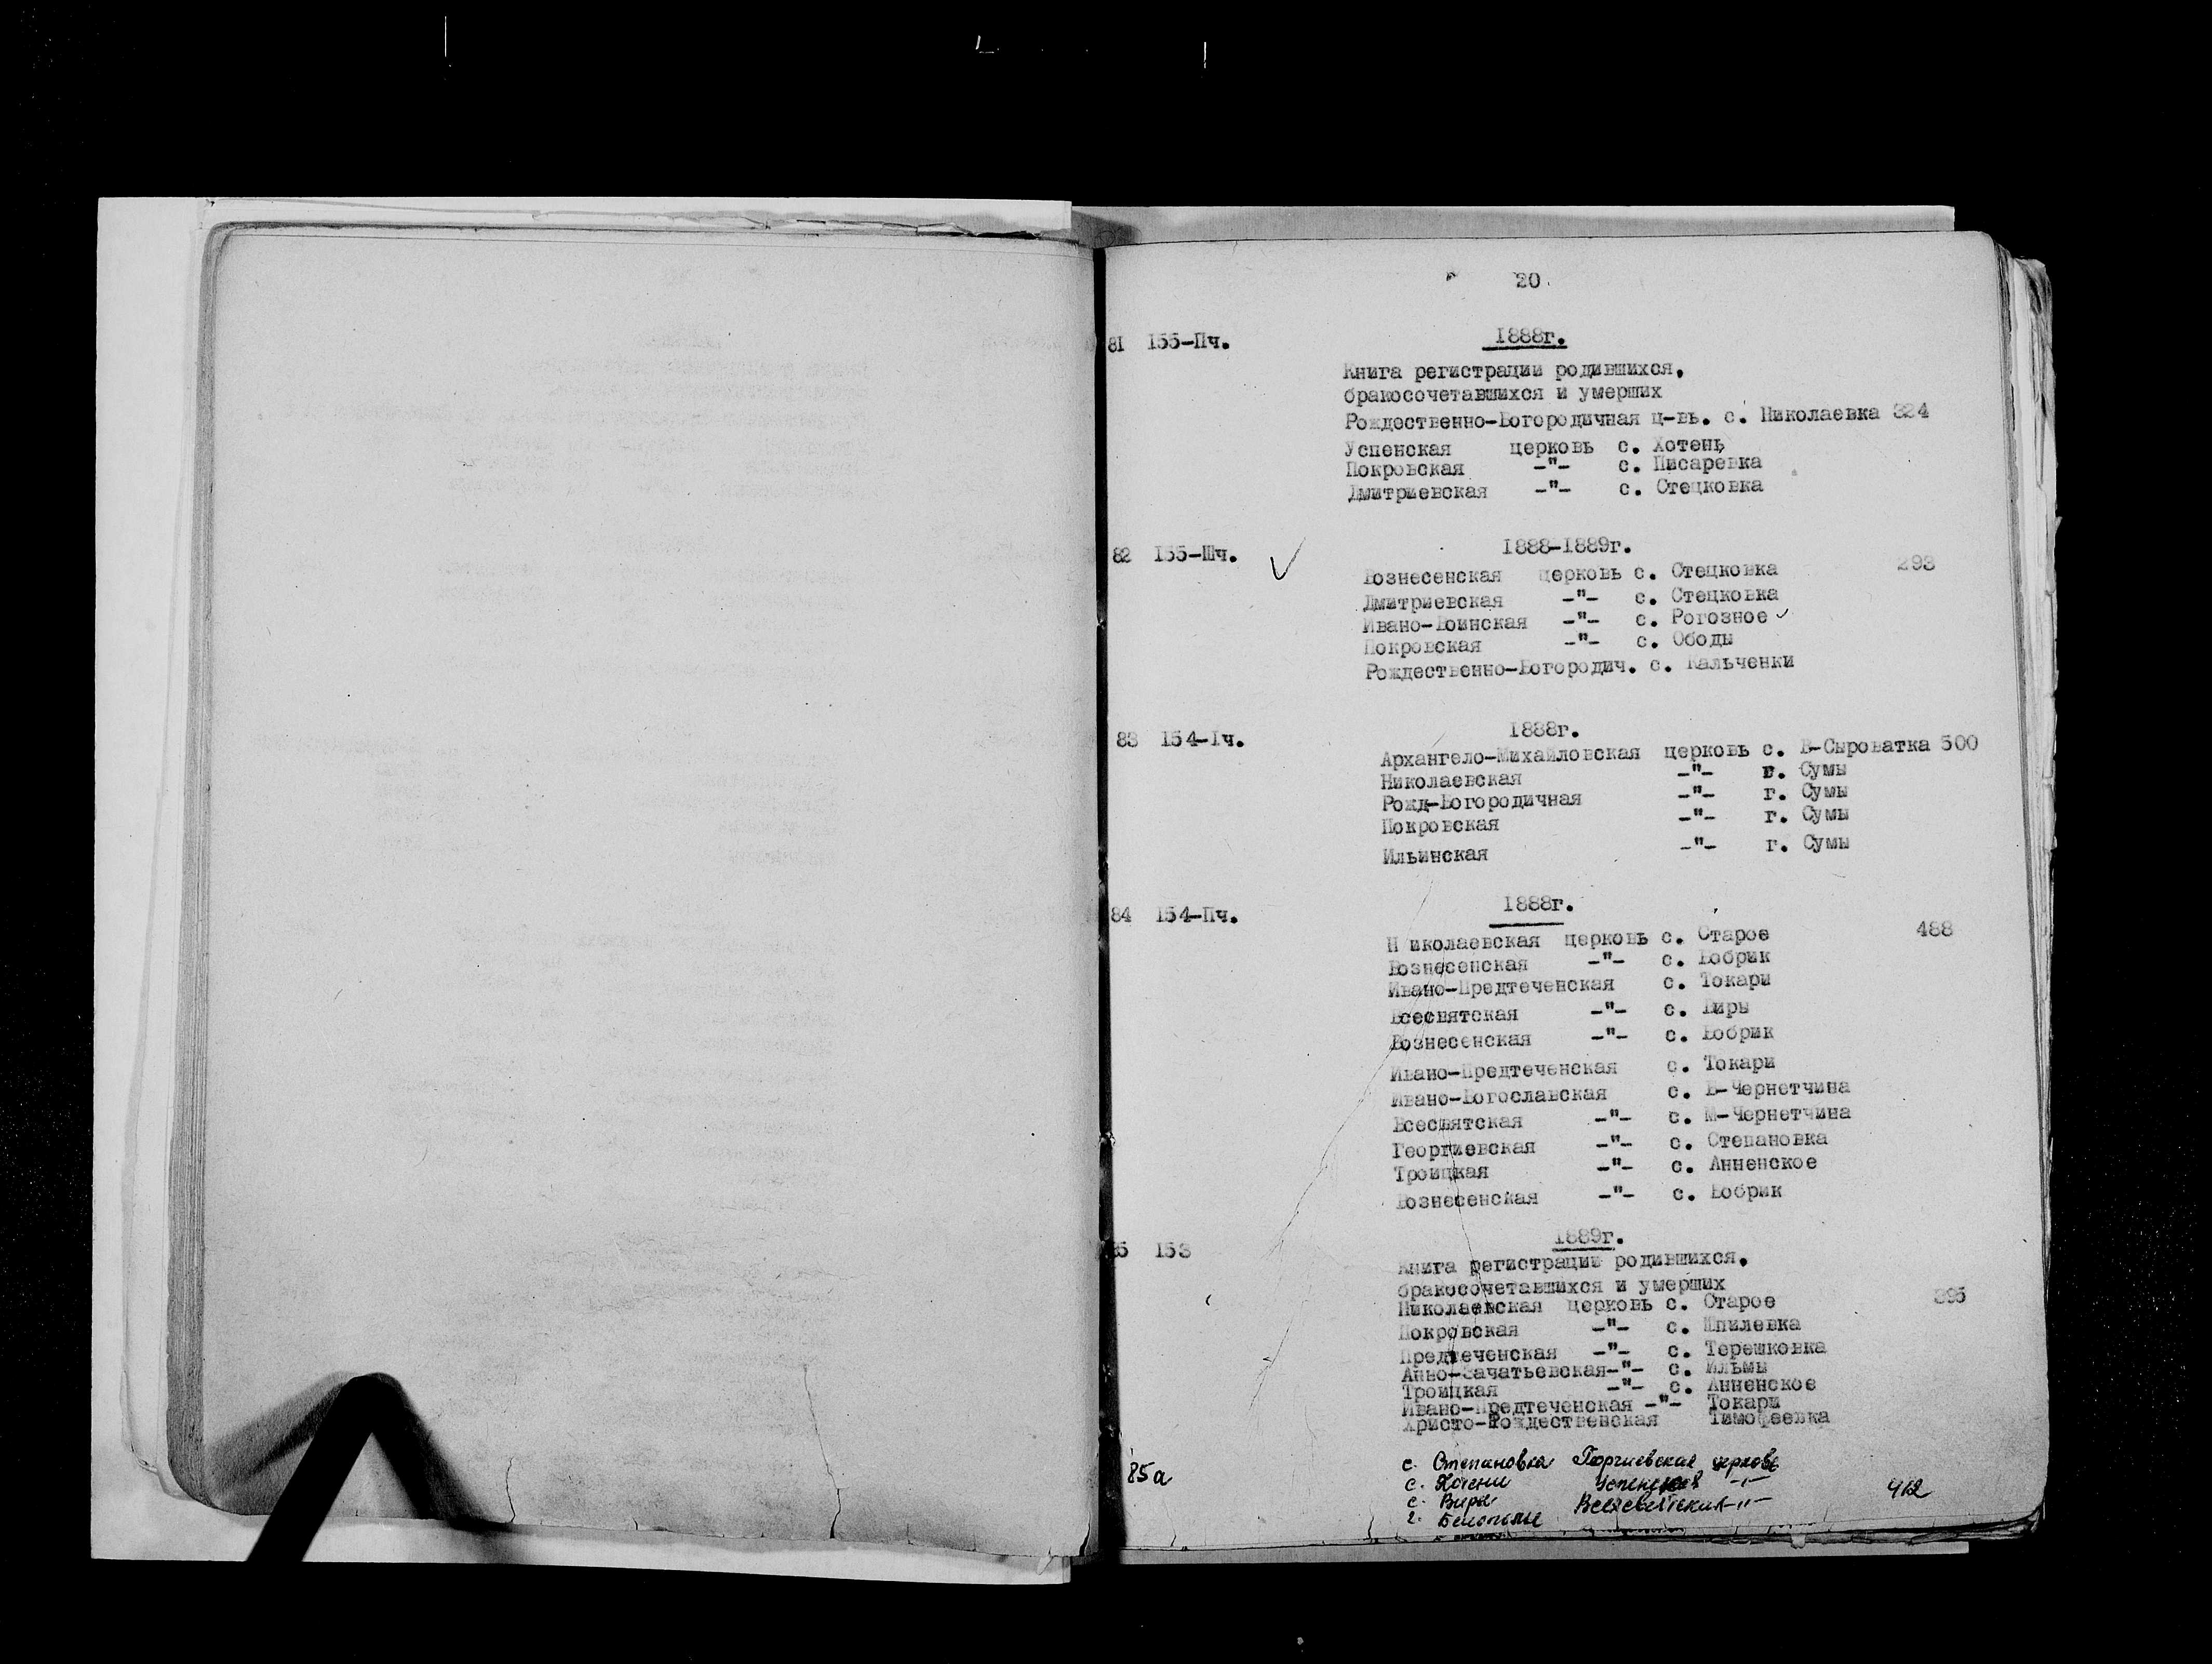 20.
81 155-Пч. 1888г.
Книга регистрации родившихся,
бракосочетавшихся и умерших
Рождественно-Богородичная ц-вь. с. Николаевка 324
Успенская церковь с. Хотень
Покровская -"- с. Писаревка
Дмитриевская -"- с. Стецковка
82 155-Шч. ✓ 1888-1889г.
Вознесенская церковь с. Стецковка 293
Дмитриевская -"- с. Стецковка
Ивано-Воинская -"- с. Рогозное ✓
Покровская -"- с. Ободы
Рождественно-Богородич. с. Кальченки
83 154-Iч. 1888г.
Архангело-Михайловская церковь с. В-Сыроватка 500
Николаевская -"- г. Сумы
Рожд-Богородичная -"- г. Сумы
Покровская -"- г. Сумы
Ильинская -"- г. Сумы
84 154-Пч. 1888г.
Н иколаевская церковь с. Старое 488
Вознесенская -"- с. Бобрик
Ивано-Предтеченская с. Токари
Всесвятская -"- с. Виры
Вознесенская -"- с. Бобрик
Ивано-Предтеченская с. Токари
Ивано-Богославская с. В-Чернетчина
Всесвятская -"- с. М-Чернетчина
Георгиевская -"- с. Степановка
Троицкая -"- с. Анненское
Вознесенская -"- с. Бобрик
85 153 1889г.
Книга регистрации родившихся,
бракосочетавшихся и умерших
Николаевская церковь с. Старое 395
Покровская -"- с. Шпилевка
Предтеченская -"- с. Терешковка
Анно-Зачатьевская-"- с. Ильмы
Троицкая -"- с. Анненское
Ивано-Предтеченская -"- Токари
Христо-Рождественская Тимофеевка
85а с. Степановка Георгиевская церковь
с. Хотени Успенская -"-
с. Виры Всесвятская -"- 412
г. Белополье